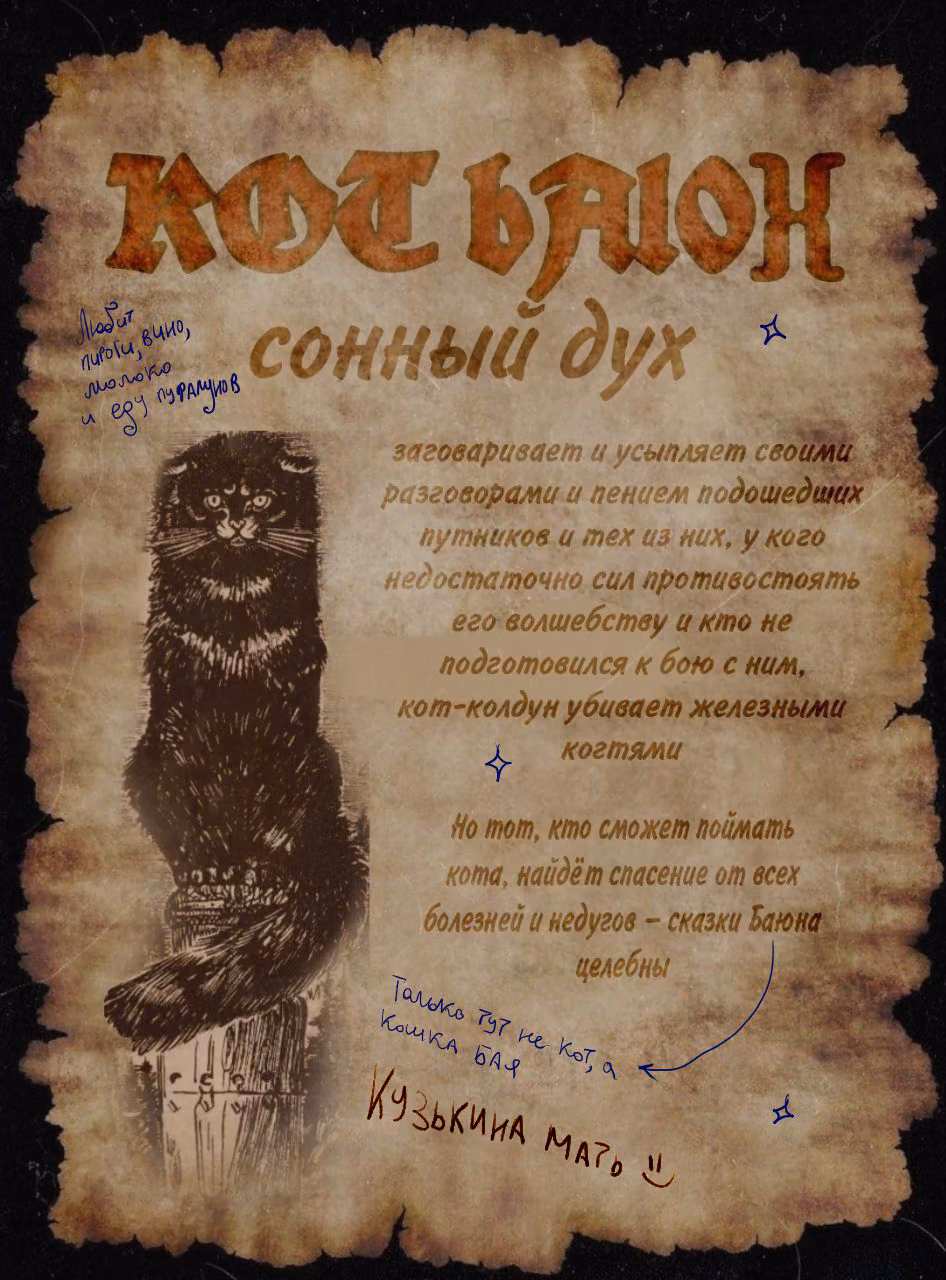 КОТ БАЮН
сонный дух
Любит
пироги, вино,
молоко
и еду пуфалунов
заговаривает и усыпляет своими
разговорами и пением подошедших
путников и тех из них, у кого
недостаточно сил противостоять
его волшебству и кто не
подготовился к бою с ним,
кот-колдун убивает железными
когтями
Но тот, кто сможет поймать
кота, найдёт спасение от всех
болезней и недугов – сказки Баюна
целебны
Только тут не кот, а
кошка Бая
Кузькина мать